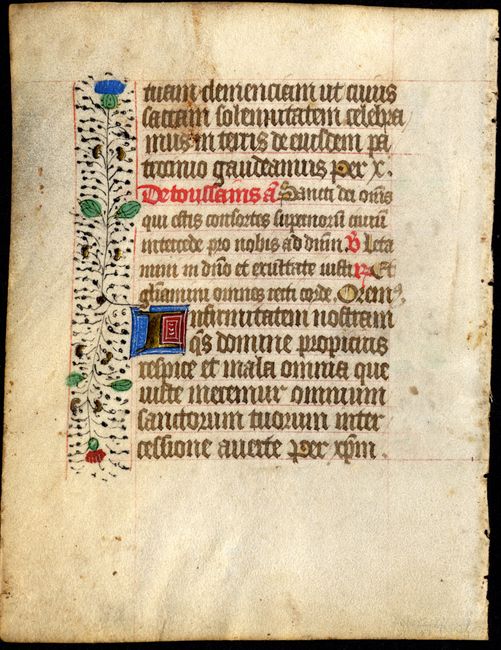 tuam clemenciam ut cuius
sacram solennitatem celebra
mus in terris de eiusdem pa
trocinio gaudeamus per x.
De toussains ā Sancti dei om̄s
qui estis consortes superiorū ciuiū
intercede pro nobis ad dn̄m ꝟ Leta
mini in dn̄o et exultate iusti ꝶ Et
gl̄iamini omnes recti corde. Oremꝰ.
Infirmitatem nostram
q̄s domine propicius
respice et mala omnia que
iuste meremur omnium
sanctorum tuorum inter
cessione auerte per xp̄m.